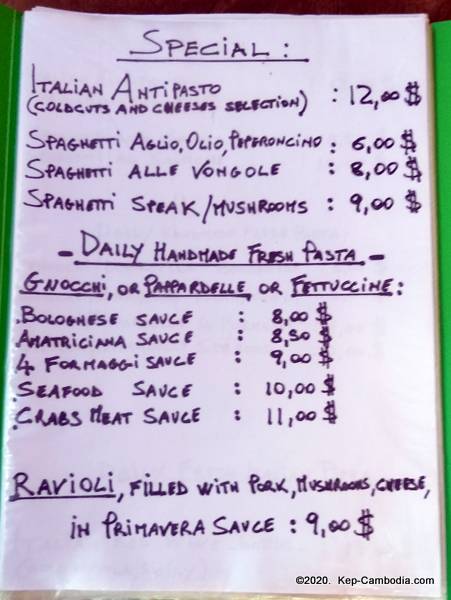 SPECIAL :
ITALIAN ANTIPASTO
(COLDCUTS AND CHEESES SELECTION) : 12,00 $
SPAGHETTI AGLIO, OLIO, PEPERONCINO : 6,00 $
SPAGHETTI ALLE VONGOLE : 8,00 $
SPAGHETTI SPEAK/MUSHROOMS : 9,00 $
- DAILY HANDMADE FRESH PASTA -
GNOCCHI, OR PAPPARDELLE, OR FETTUCCINE :
BOLOGHESE SAUCE : 8,00 $
AMATRICIANA SAUCE : 8,50 $
4 FORMAGGI SAUCE : 9,00 $
SEAFOOD SAUCE : 10,00 $
CRABS MEAT SAUCE : 11,00 $
RAVIOLI, FILLED WITH PORK, MUSHROOMS, CHEESE,
IN PRIMAVERA SAUCE : 9,00 $
©2020. Kep-Cambodia.com